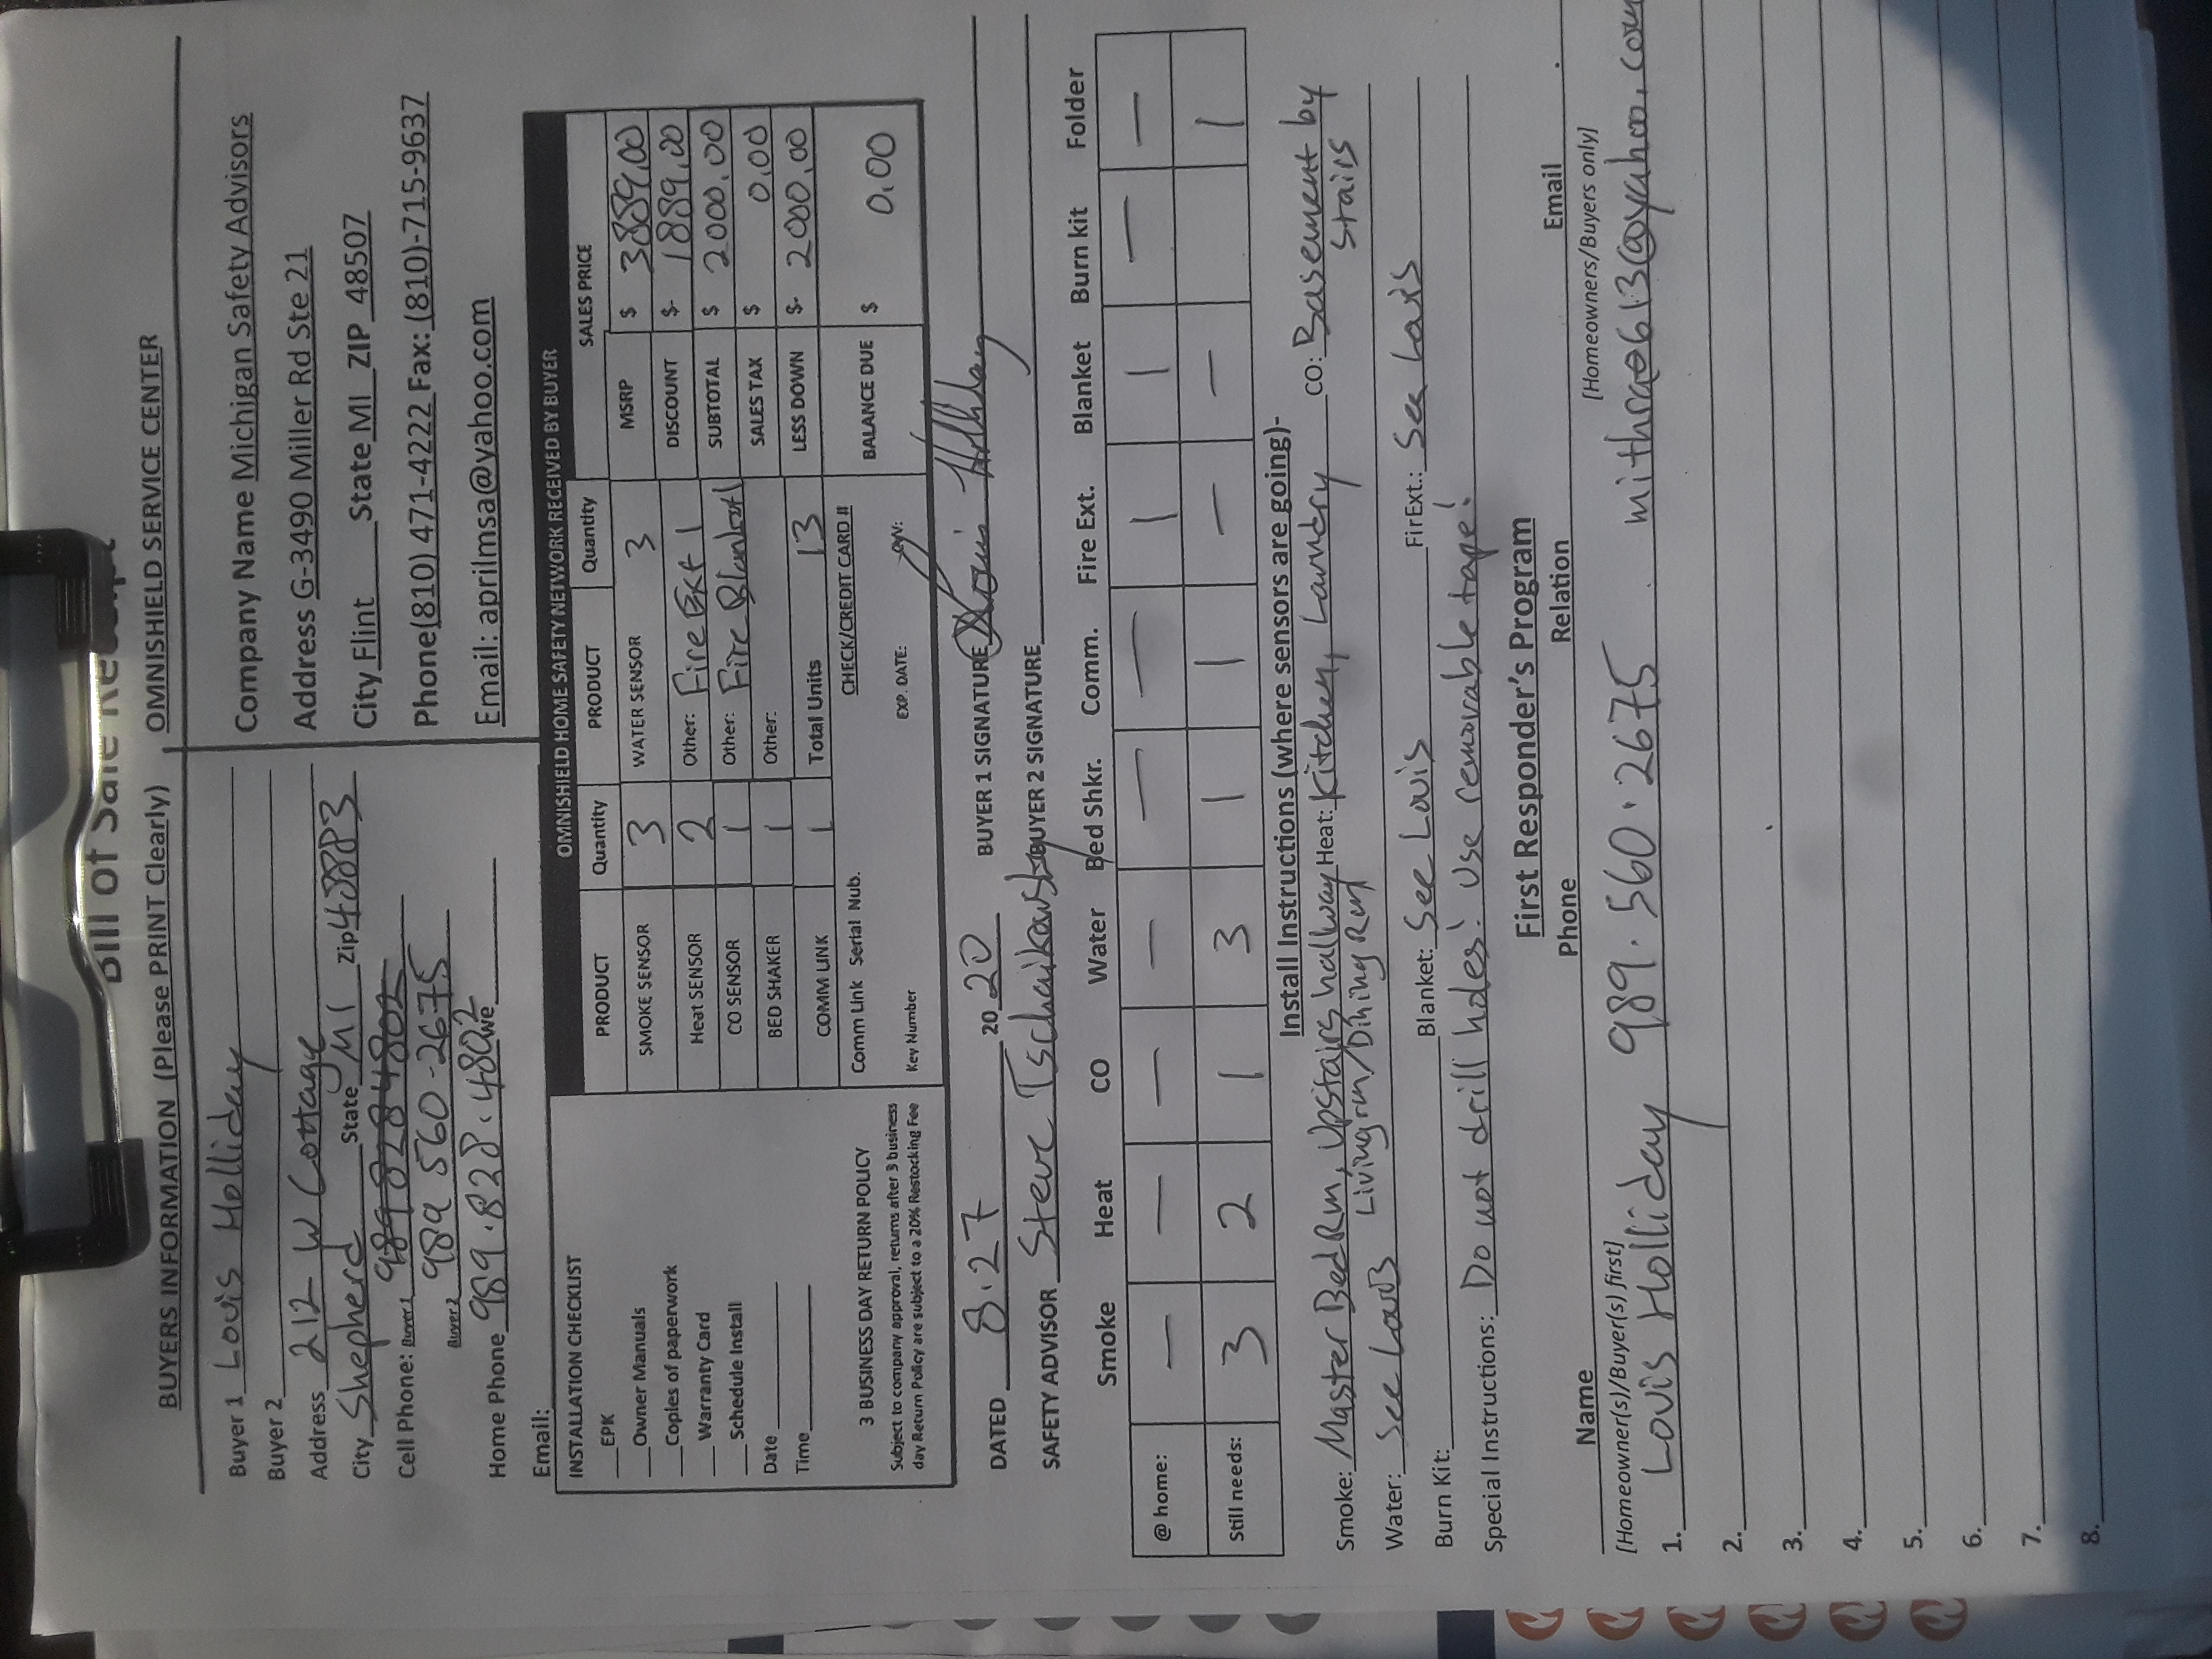 Bill of Sale Receipt
BUYERS INFORMATION (Please PRINT Clearly)
Buyer 1 Louis Holliday
Buyer 2
Address 212 W Cottage
City Shepherd State MI Zip 48883
Cell Phone: Buyer 1 989 828 4802
989 560-2675
Buyer 2
Home Phone 989.828.4802 We
Email:
OMNISHIELD SERVICE CENTER
Company Name Michigan Safety Advisors
Address G-3490 Miller Rd Ste 21
City Flint State MI ZIP 48507
Phone(810) 471-4222 Fax: (810)-715-9637
Email: aprilmsa@yahoo.com
INSTALLATION CHECKLIST
EPK
Owner Manuals
Copies of paperwork
Warranty Card
Schedule Install
Date
Time
3 BUSINESS DAY RETURN POLICY
Subject to company approval, returns after 3 business
day Return Policy are subject to a 20% Restocking Fee
OMNISHIELD HOME SAFETY NETWORK RECEIVED BY BUYER
PRODUCT Quantity PRODUCT Quantity SALES PRICE
SMOKE SENSOR 3 WATER SENSOR 3 MSRP $ 3889.00
Heat SENSOR 2 Other: Fire Ext 1 DISCOUNT $- 1889.00
CO SENSOR 1 Other: Fire Blanket 1 SUBTOTAL $ 2000.00
BED SHAKER 1 Other: SALES TAX $ 0.00
COMM LINK 1 Total Units 13 LESS DOWN $- 2000.00
Comm Link Serial Nub. CHECK/CREDIT CARD # BALANCE DUE $ 0.00
Key Number EXP. DATE:
DATED 8.27 20 20 BUYER 1 SIGNATURE Louis Holliday
SAFETY ADVISOR Steve Tschaikovsky BUYER 2 SIGNATURE
Smoke Heat CO Water Bed Shkr. Comm. Fire Ext. Blanket Burn kit Folder
@ home: — — — — — — 1 1 — —
Still needs: 3 2 1 3 1 1 — — 1
Install Instructions (where sensors are going)-
Smoke: Master BedRm, Upstairs hallway Heat: Kitchen, Laundry CO: Basement by
Livingrm/Dining Rm stairs
Water: See Louis Blanket: See Louis FirExt.: See Louis
Burn Kit:
Special Instructions: Do not drill holes! Use removable tape!
First Responder's Program
Name Phone Relation Email
[Homeowner(s)/Buyer(s) first] [Homeowners/Buyers only]
1. Louis Holliday 989.560.2675 mithrae613@yahoo.com
2.
3.
4.
5.
6.
7.
8.